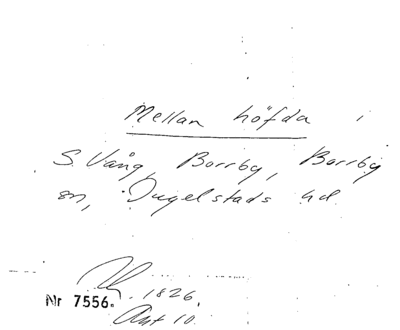 Mellan höfda i
S. Vång, Borrby, Borrby
sn, Ingelstads hd
Nr 7556. 1826.
Akt 10.